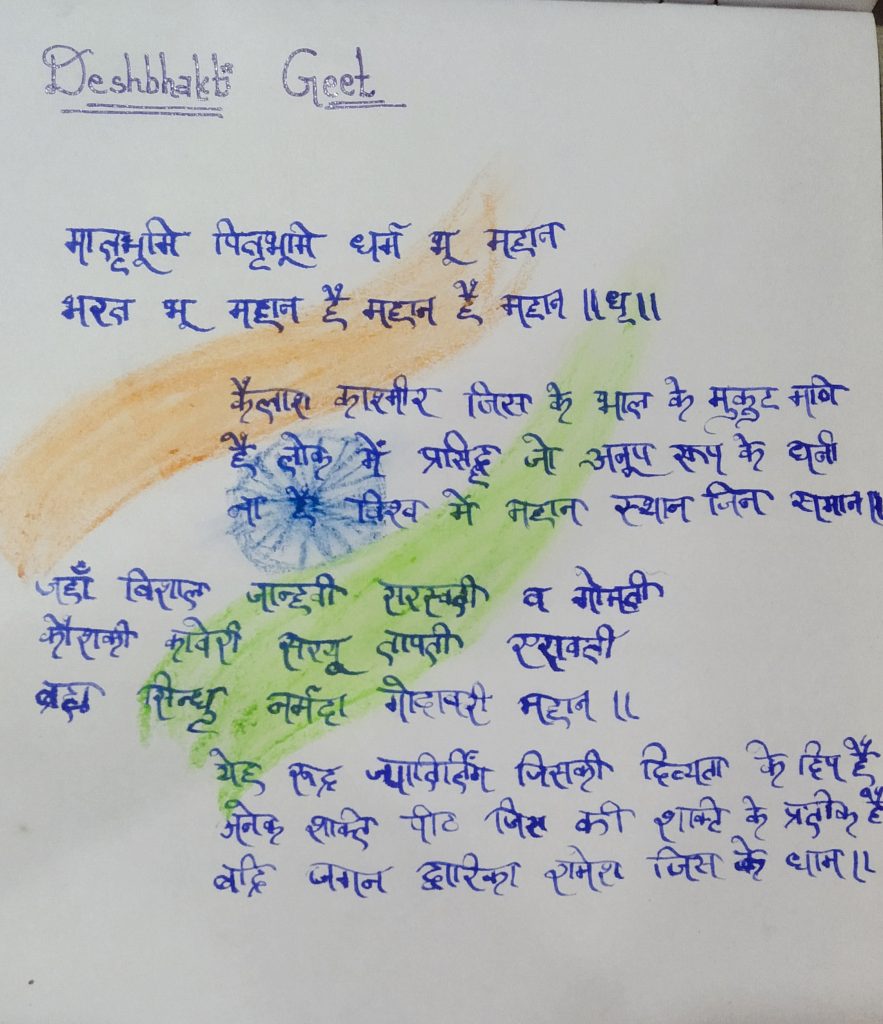 Deshbhakti Geet
मातृभूमि पितृभूमि धर्म भू महान
भरत भू महान है महान है महान ॥धृ॥
कैलाश काश्मीर जिस के भाल के मुकुट मणि
है लोक में प्रसिद्ध जो अनूप रूप के धनी
ना है विश्व में महान स्थान जिन समान॥
जहाँ विशाल जान्हवी सरस्वती व गोमती
कौशकी कावेरी सरयू तापती एरावती
ब्रह्म सिन्धु नर्मदा गोदावरी महान ॥
येह रूद्र ज्योतिर्लिंग जिसकी दिव्यता के दिप है
अनेक शक्ति पीठ जिस की शक्ति के प्रतीक है
बद्रि जगन द्वारिका रामेश जिस के धाम॥